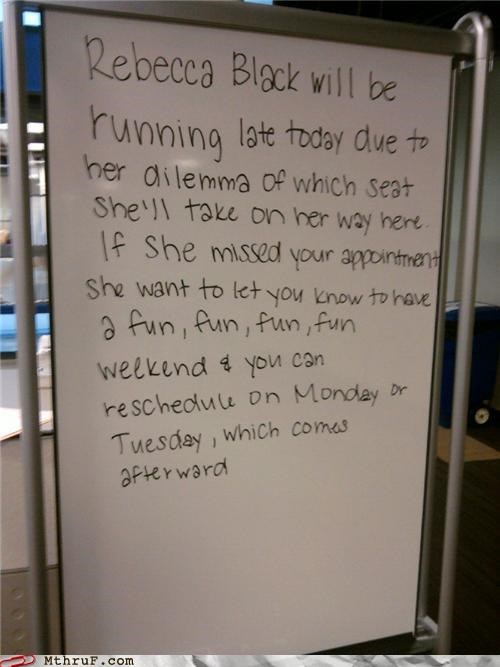 Rebecca Black will be
running late today due to
her dilemma of which seat
she'll take on her way here.
If she missed your appointment
she want to let you know to have
a fun, fun, fun, fun
weekend & you can
reschedule on Monday or
Tuesday, which comes
afterward
MthruF.com